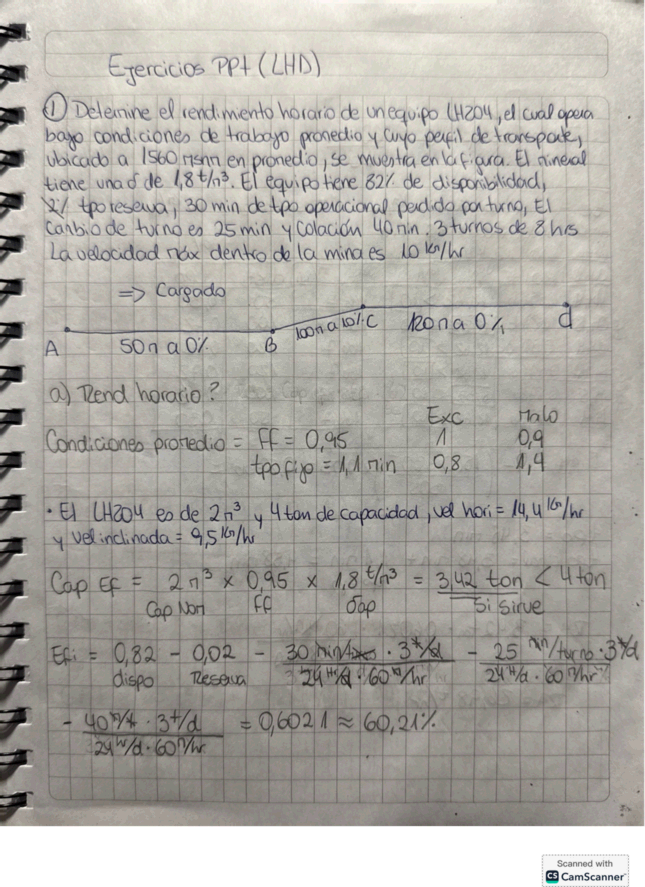 Ejercicios PPt (LHD)
① Determine el rendimiento horario de un equipo LH204, el cual opera
bajo condiciones de trabajo promedio y cuyo perfil de transporte,
ubicado a 1560 msnm en promedio, se muestra en la figura. El mineral
tiene una δ de 1,8 t/m³. El equipo tiene 82% de disponibilidad,
2% tpo reserva, 30 min de tpo operacional perdido por turno, El
cambio de turno es 25 min y colación 40 min. 3 turnos de 8 hrs
La velocidad máx dentro de la mina es 10 km/hr
=> Cargado
A 50 m a 0% B 100 m a 10% C 120 m a 0% d
a) Rend horario?
Exc Malo
Condiciones promedio = FF = 0,95 1 0,9
tpo fijo = 1,1 min 0,8 1,4
• El LH204 es de 2 m³ y 4 ton de capacidad, vel hori = 14,4 km/hr
y vel inclinada = 9,5 km/hr
Cap Ef = 2 m³ x 0,95 x 1,8 t/m³ = 3,42 ton < 4 ton
Cap Nom FF δap Si sirve
Efi = 0,82 - 0,02 - 30 min/turno · 3 t/d - 25 min/turno · 3 t/d
dispo Reserva 24 Hr/d · 60 m/hr 24 H/d · 60 m/hr
- 40 m/t · 3 t/d = 0,6021 ≈ 60,21%
24 hr/d · 60 m/hr
Scanned with
CS CamScanner